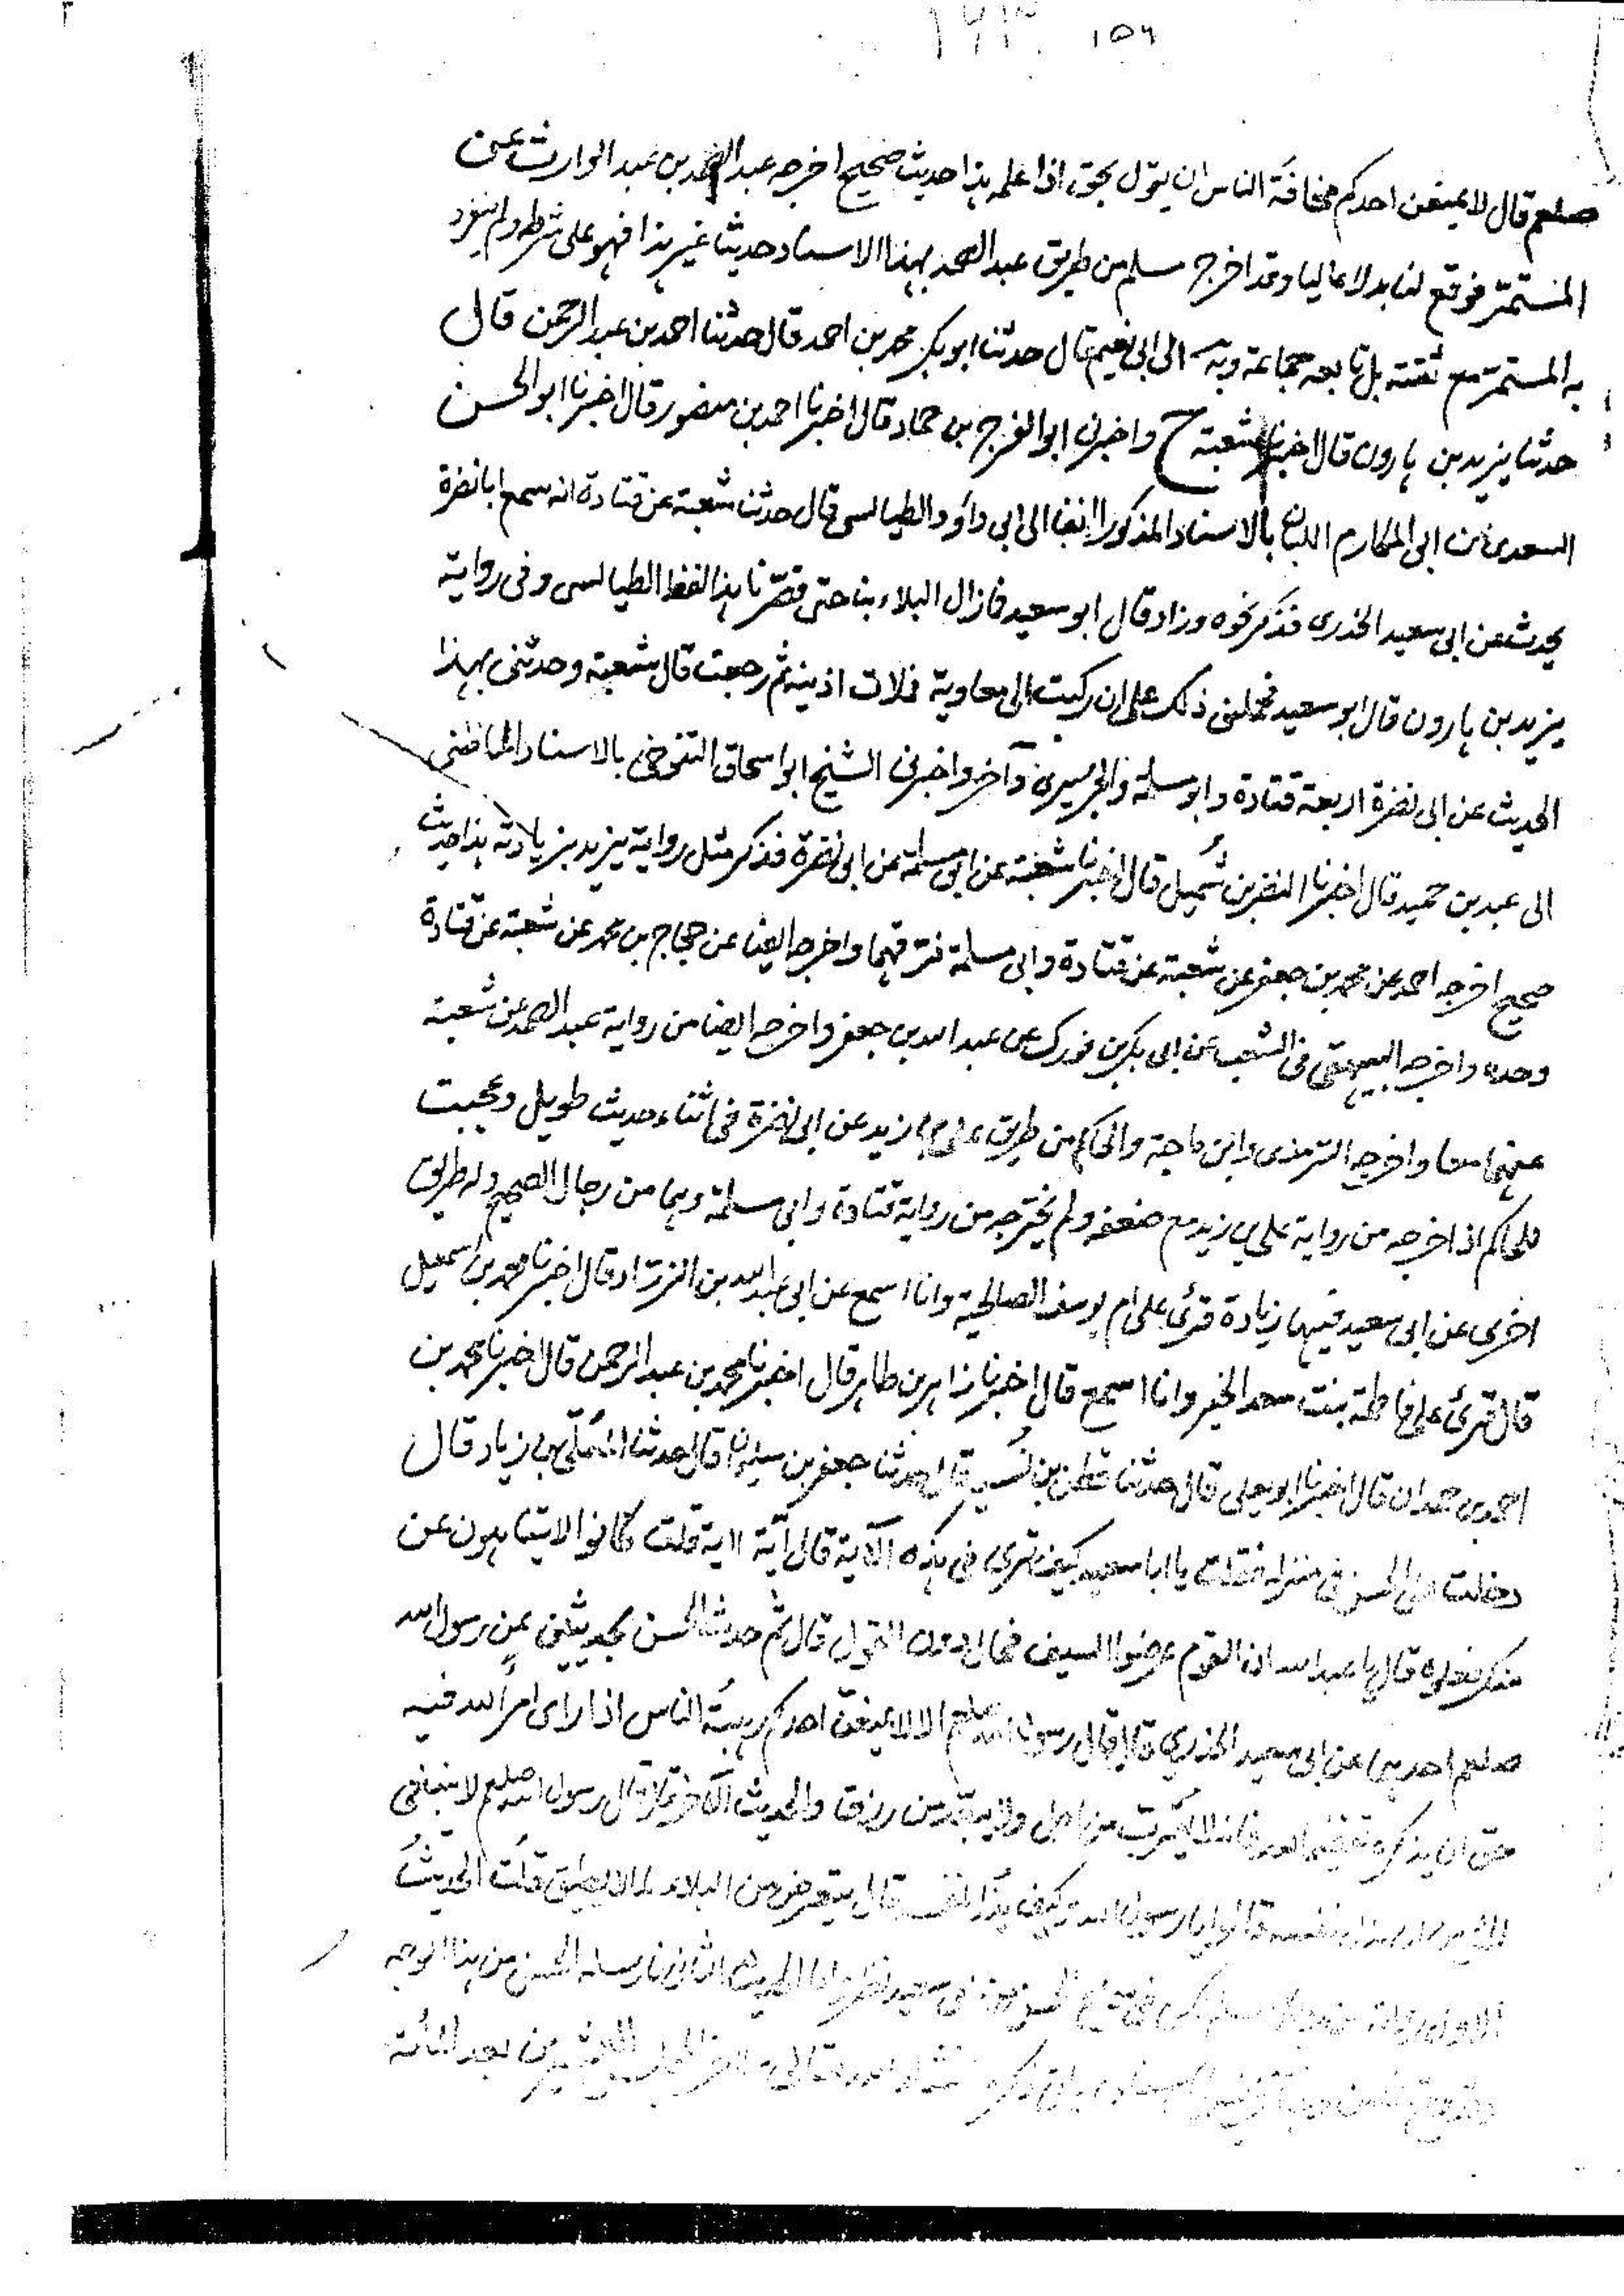 ١٥٦
صلعم قال لا يمنعن احدكم مخافة الناس ان يقول بحق اذا علمه هذا حديث صحيح اخرجه عبد الصمد بن عبد الوارث عن
المستمر فوقع لنا بدلا عاليا وقد اخرج مسلم من طريق عبد الصمد بهذا الاسناد حديثا غير هذا فهو على شرطه ولم ينفرد
به المستمر مع ثقته بل تابعه جماعة وبه الى ابى نعيم قال حدثنا ابو بكر محمد بن احمد قال حدثنا احمد بن عبد الرحمن قال
حدثنا يزيد بن هارون قال اخبرنا شعبة ح واخبرنى ابو الفرج بن حماد قال اخبرنا احمد بن منصور قال اخبرنا ابو الحسن
السعدى عن ابى المكارم اللبان بالاسناد المذكور انفا الى ابى داؤد الطيالسى قال حدثنا شعبة عن قتادة انه سمع ابا نضرة
يحدث عن ابى سعيد الخدرى فذكر نحوه وزاد قال ابو سعيد فما زال البلاء بنا حتى قصرنا هذا لفظ الطيالسى وفى رواية
يزيد بن هارون قال ابو سعيد فحملنى ذلك على ان ركبت الى معاوية فملات اذنيه ثم رجعت قال شعبة وحدثنى بهذا
الحديث عن ابى نضرة اربعة قتادة وابو مسلمة والجريرى وآخر واخبرنى الشيخ ابو اسحاق التنوخى بالاسناد الماضى
الى عبد بن حميد قال اخبرنا النضر بن شُميل قال اخبرنا شعبة عن ابى مسلمة عن ابى نضرة فذكر مثل رواية يزيد بزيادته هذا حديث
صحيح اخرجه احمد عن محمد بن جعفر عن شعبة عن قتادة وابى مسلمة فرقهما واخرجه ايضا عن حجاج بن محمد عن شعبة عن قتادة
وحده واخرجه البيهقى فى الشعب عن ابى بكر بن فورك عن عبد الله بن جعفر واخرجه ايضا من رواية عبد الصمد عن شعبة
عنهما معا واخرجه الترمذى وابن ماجة والحاكم من طريق على بن زيد عن ابى نضرة فى اثناء حديث طويل وعجبت
للحاكم اذ اخرجه من رواية على بن زيد مع ضعفه ولم يخرجه من رواية قتادة وابى مسلمة وهما من رجال الصحيح وله طريق
اخرى عن ابى سعيد فيها زيادة قرئ على ام يوسف الصالحية وانا اسمع عن ابى عبد الله بن الزراد قال اخبرنا محمد بن اسمعيل
قال قرئ على فاطمة بنت سعد الخير وانا اسمع قال اخبرنا زاهر بن طاهر قال اخبرنا محمد بن عبد الرحمن قال اخبرنا محمد بن
احمد بن حمدان قال اخبرنا ابو يعلى قال حدثنا قطن بن نُسير قال حدثنا جعفر بن سليمان قال حدثنا المُعلّى بن زياد قال
دخلت على الحسن فى منزله فقلت يا ابا سعيد كيف ترى فى هذه الآية قال اية آية قلت كانوا لا يتناهون عن
منكر فعلوه قال يا عبد الله ان القوم عرضوا السيف فحال دون القول قال ثم حدث الحسن بحديثين عن رسول الله
صلعم احدهما عن ابى سعيد الخدري قال قال رسول الله صلعم الا لا يمنعن احدكم رهبة الناس اذا راى امرا لله فيه
حق ان يذكر فانه لا يقرب من اجل ولا يبعد من رزق والحديث الآخر قال قال رسول الله صلعم لا ينبغى
ان يذل نفسه قالوا يا رسول الله وكيف يذل نفسه قال يتعرض من البلاء لما لا يطيق قلت الحديث
الحسن من ابى سعيد نظر واما الحديث الثانى فارسله الحسن من هذا الوجه
بعد المائة